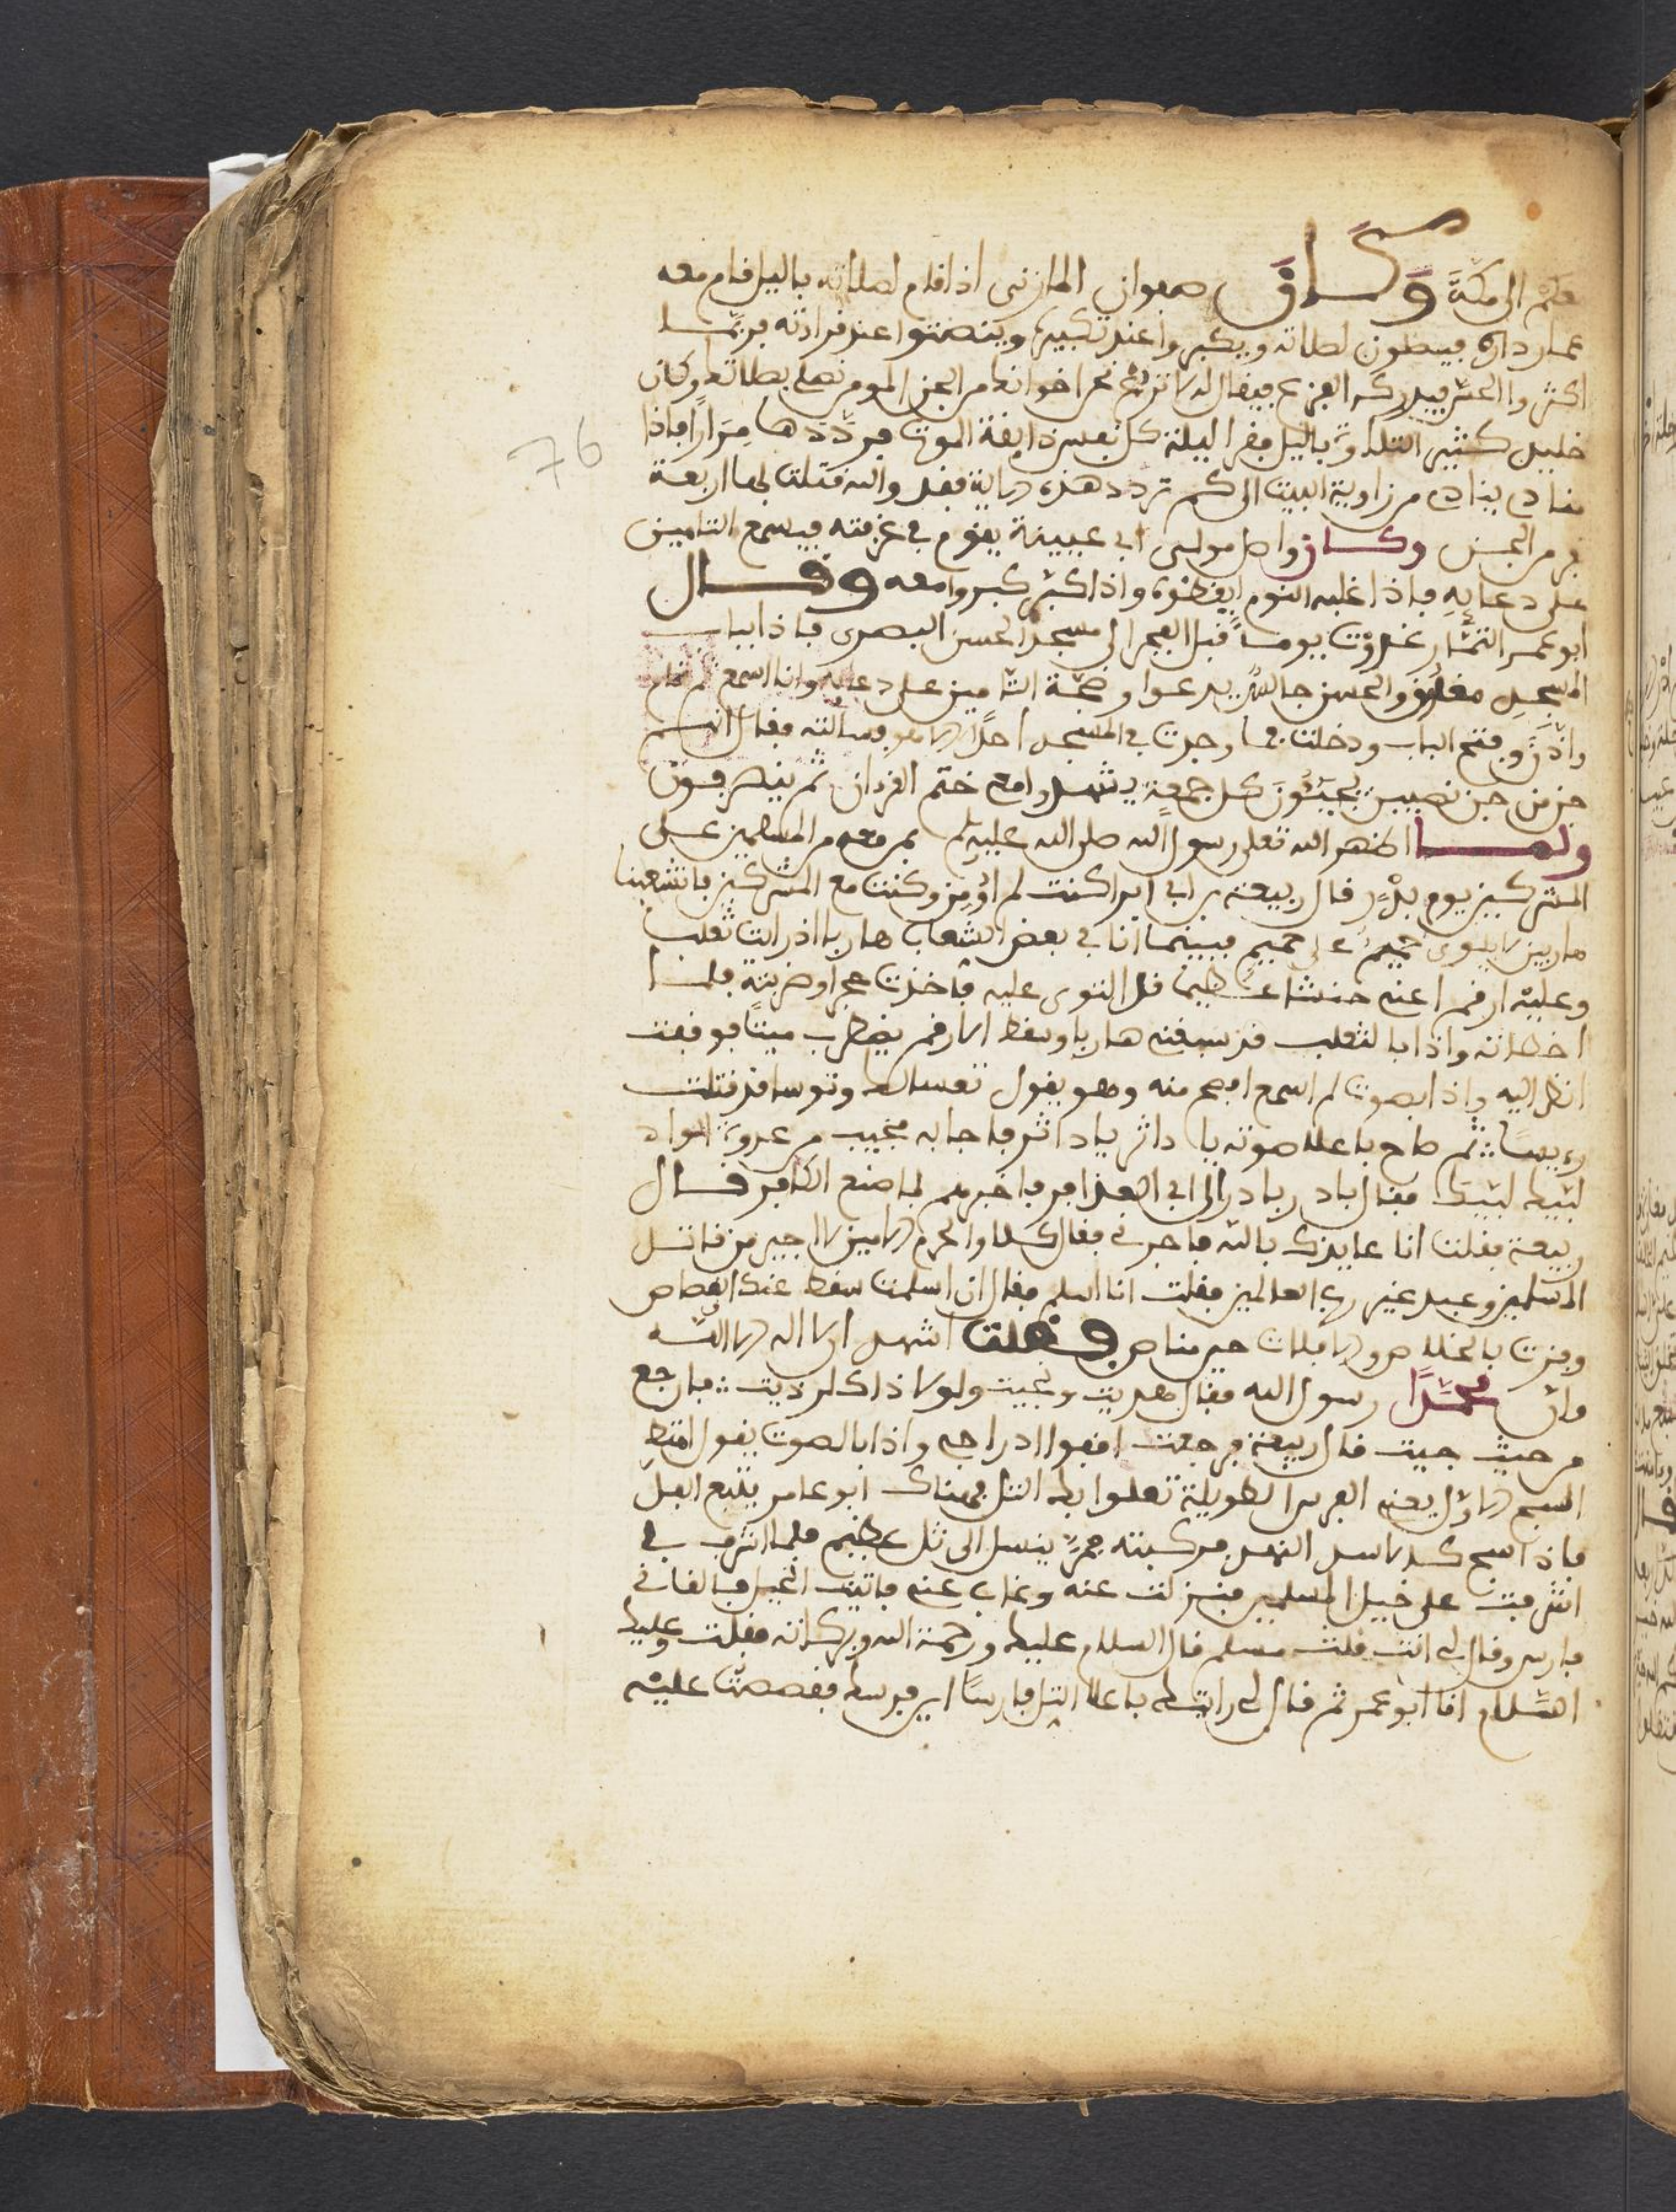 الى مكة وكان صفوان المازني اذا قام لصلاته بالليل قام معه
عمار داره فيصلون لصلاته ويكبروا عند تكبيره وينصتوا عند قراءته فربما
اكثروا الحس فيدركه الفزع فيقال له لا تزع نحن اخوانك من الجن المومن نصلي بصلاتك وكان
خليل كثير التلاوة بالليل فقرا ليلة كل نفس ذايقة الموت فرددها مرارا فاذا
مناد ينادي من زاوية البيت الى كم تردد هذه الاية فقد والله قتلت بها اربعة
من الجن وكان واصل مولى ابي عيينة يقوم في غرفته فيسمع التامين
على دعايه فاذا غلبه النوم ايقظوه واذا كبر كبروا معه وقال
ابو عمر التمار غدوت يوما قبل الفجر الى مسجد الحسن البصري فاذا باب
المسجد مغلق والحسن جالس يدعوا وضجة التامين على دعايه وانا اسمع ثم قام
واذن وفتح الباب ودخلت فما وجدت في المسجد احدا الا هو فسالته فقال انهم
جن من جن نصيبين يجيئون كل جمعة يشهدوا معي ختم القران ثم ينصرفون
ولما اظهر الله تعلى رسول الله صلى الله عليه وسلم بمن معه من المسلمين على
المشركين يوم بدر قال ربيعة بن ابي برا كنت لم اومن وكنت مع المشركين فانشعبنا
هاربين لا يلوي حميم على حميم فبينما انا في بعض الشعاب هاربا اذ رايت ثعلبا
وعليه ارقم اعني حنشا عظيما قد التوى عليه فاخذت حجرا وضربته فلما
اخطاته واذا بالثعلب قد سبقني هاربا وسقط الارقم يضطرب ميتا فوقفت
انظر اليه واذا بصوت لم اسمع افصح منه وهو يقول تعسا لك وبوسا قد قتلت
رييسا ثم صاح باعلا صوته يا داثر يا داثر فاجابه مجيب من عدوة الواد
لبيك لبيك فقال بادر بادر الى ابي العذافر فاخبرهم بما صنع الكافر قال
ربيعة فقلت انا عايذك بالله فاجرني فقال كلا والحرم الامين لا اجير من قاتل
المسلمين وعبد غير رب العالمين فقلت انا اسلم فقال ان اسلمت سقط عنك القصاص
وفزت بالخلاص والا فلات حين مناص فقلت اشهد ان لا اله الا الله
وان محمدا رسول الله فقال هديت ونجيت ولولا ذاك لرديت فارجع
من حيث جيت قال ربيعة فرجعت اقفوا ادراجي واذا بالصوت يقول امتط
السمع الازل يعني الفرس الطويلة تعلوا بك التل فهناك ابو عامر يتبع الفل
فاذا سمع كالاسد النهد فركبته فمر ينسل الى تل عظيم فلما اشرف بي
اشرفت على خيل المسلمين فنزلت عنه وغاب عني فاتيت الخيل فلقاني
فارس وقال لي انت قلت مسلم قال السلام عليك ورحمة الله وبركاته فقلت وعليك
السلام انا ابو عمر ثم قال لي رايتك باعلا التل فارسا اين فرسك فقصصت عليه
76